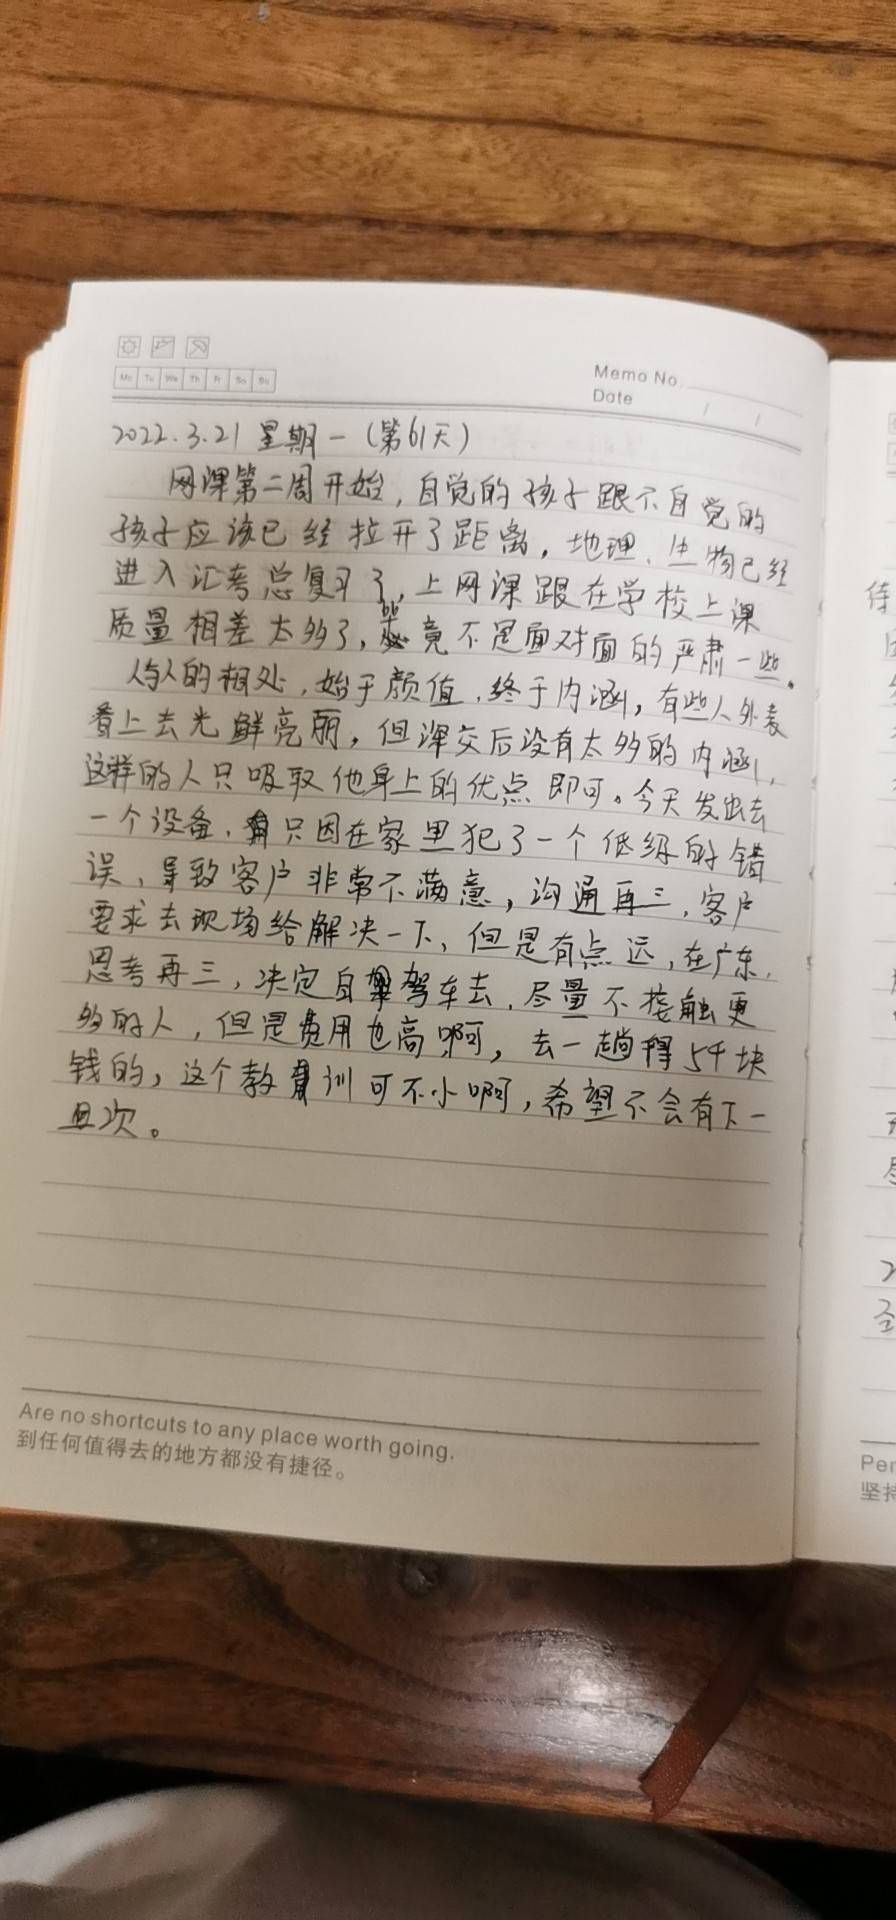 Mo Tu We Th Fr Sa Su
Memo No.
Date / /
2022.3.21 星期一 (第61天)
网课第二周开始,自觉的孩子跟不自觉的
孩子应该已经拉开了距离,地理、生物已经
进入汇考总复习了,上网课跟在学校上课
质量相差太多了,毕竟不是面对面的严肃一些。
人与人的相处,始于颜值,终于内涵,有些人外表
看上去光鲜亮丽,但深交后没有太多的内涵,
这样的人只吸取他身上的优点即可。今天发出去
一个设备,只因在家里犯了一个低级的错
误,导致客户非常不满意,沟通再三,客户
要求去现场给解决一下,但是有点远,在广东,
思考再三,决定自驾车去,尽量不接触更
多的人,但是费用也高啊,去一趟得5千块
钱的,这个教训可不小啊,希望不会有下一
次。
Are no shortcuts to any place worth going.
到任何值得去的地方都没有捷径。
待
Per
坚持